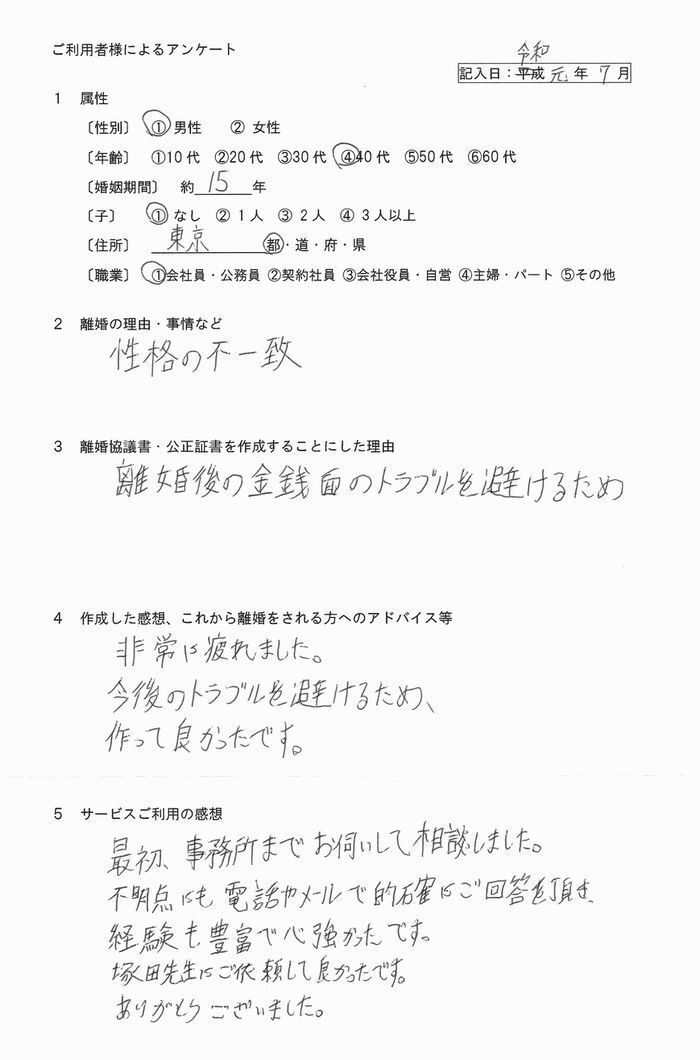 ご利用者様によるアンケート
令和
記入日：平成 元 年 7 月
1 属性
〔性別〕 ①男性 ②女性
〔年齢〕 ①10代 ②20代 ③30代 ④40代 ⑤50代 ⑥60代
〔婚姻期間〕 約 15 年
〔子〕 ①なし ②1人 ③2人 ④3人以上
〔住所〕 東京 都・道・府・県
〔職業〕 ①会社員・公務員 ②契約社員 ③会社役員・自営 ④主婦・パート ⑤その他
2 離婚の理由・事情など
性格の不一致
3 離婚協議書・公正証書を作成することにした理由
離婚後の金銭面のトラブルを避けるため
4 作成した感想、これから離婚をされる方へのアドバイス等
非常に疲れました。
今後のトラブルを避けるため、
作って良かったです。
5 サービスご利用の感想
最初、事務所までお伺いして相談しました。
不明点にも電話やメールで的確にご回答を頂き、
経験も豊富で心強かったです。
塚田先生にご依頼して良かったです。
ありがとうございました。